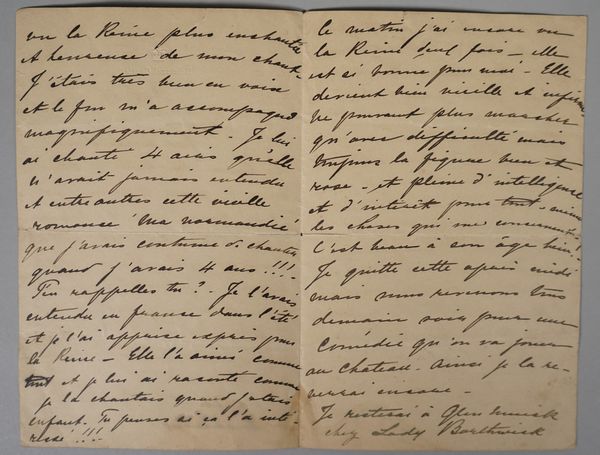 vu la Reine plus enchantée
et heureuse de mon chant.
J'étais très bien en voix
et le fm m'a accompagné
magnifiquement. Je lui
ai chanté 4 airs qu'elle
n'avait jamais entendu
et entre autres cette vieille
romance "Ma normandie"
que j'avais coutume de chanter
quand j'avais 4 ans !!!
T'en rappelles tu? - Je l'avais
entendu en france dans l'été
et je l'ai apprise exprès pour
la Reine - Elle l'a aimé comme
tout et je lui ai raconté comme
je la chantais quand j'étais
enfant. Tu penses si ça l'a inté-
ressé !!!
le matin j'ai encore vu
la Reine deux fois - elle
est si bonne pour moi - Elle
devient bien vieille et infirme
ne pouvant plus marcher
qu'avec difficulté mais
toujours la figure bien et
rose - et pleine d'intelligence
et d'intérêt pour tout - même
les choses qui me concernent !
C'est beau à son âge hein !
Je quitte cette après midi
mais nous revenons tous
demain soir pour une
Comédie qu'on va jouer
au Chateau. Ainsi je la re-
verrai encore -
Je resterai à Glen Muick
chez Lady Borthwick